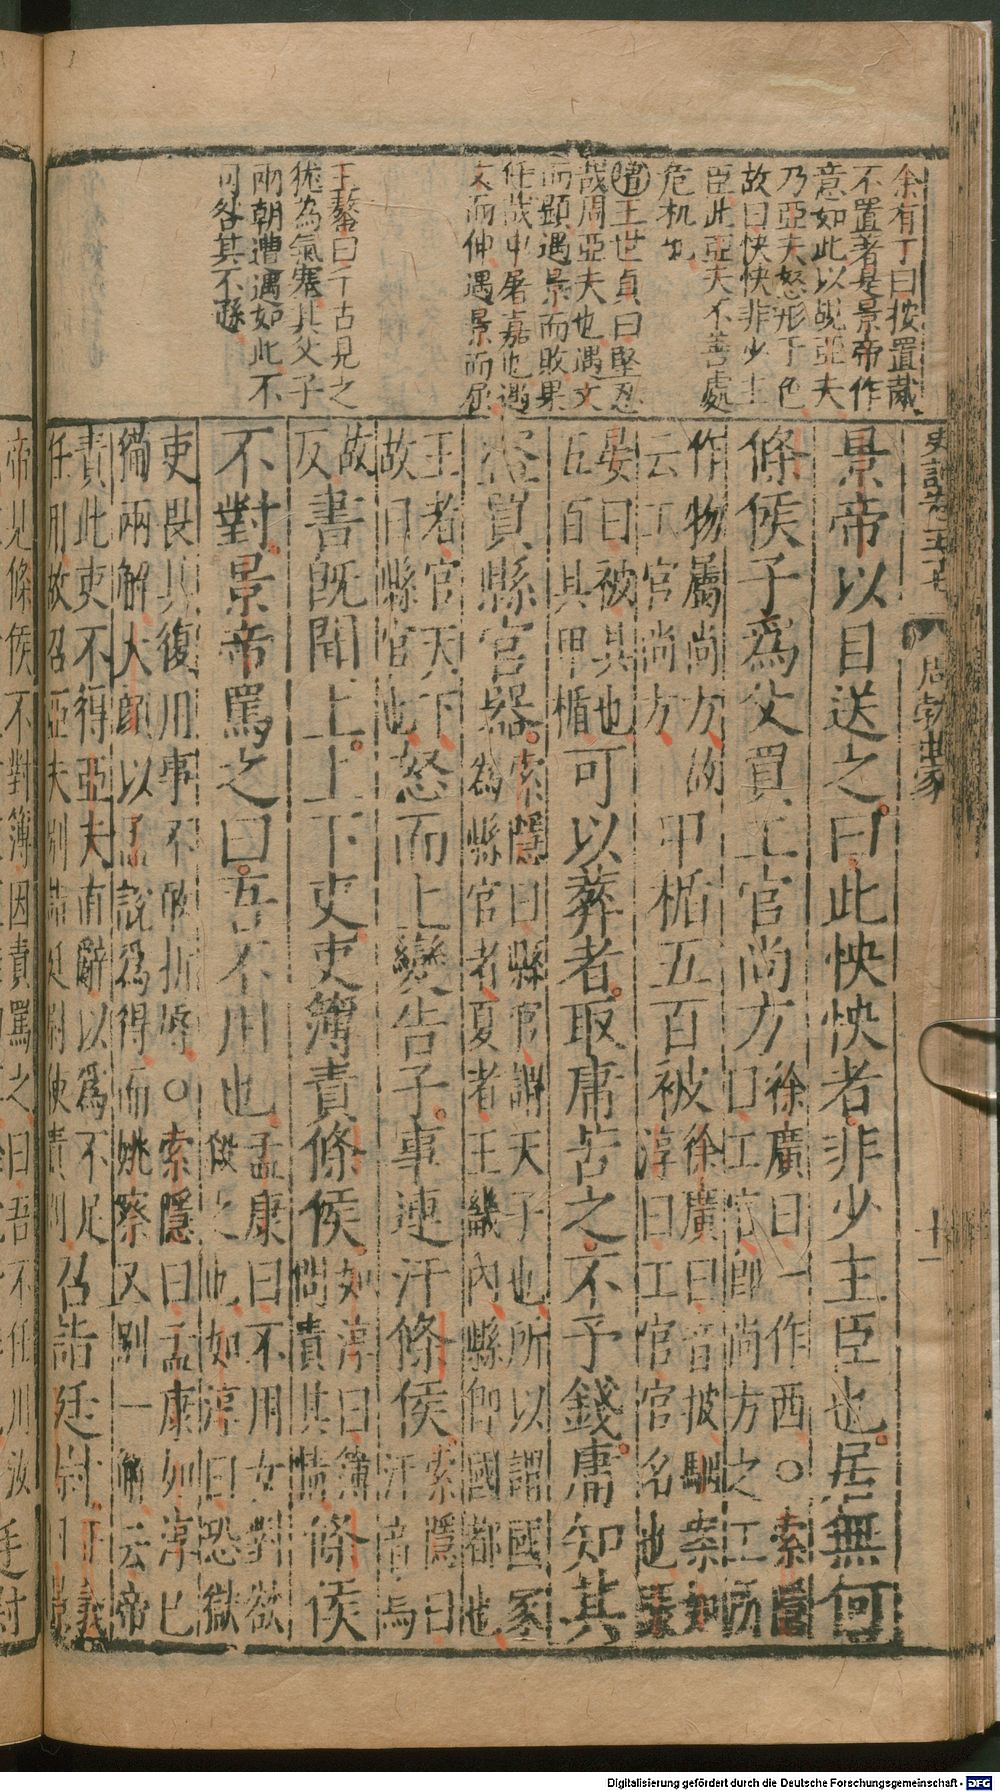 余有丁曰按置胾
不置著是景帝作
意如此以覘亞夫
乃亞夫怒形于色
故曰快快非少主
臣此亞夫不善處
危机也
王世貞曰堅忍
哉周亞夫也遇文
而顯遇景而敗果
任哉申屠嘉也遇
文而伸遇景而屈
王鏊曰千古見之
猶為氣塞其父子
兩朝遭遇如此不
可咎其不遜
史記卷五十七
周勃世家
十一
景帝以目送之曰此怏怏者非少主臣也居無何
條侯子為父買工官尚方
徐廣曰一作西○索隱
曰工官即尚方之工所
作物屬尚方故
云工官尚方
甲楯五百被
徐廣曰音披駰案如
淳曰工官官名也張
晏曰被具也
五百具甲楯
可以葬者取庸苦之不予錢庸知其
盜買縣官器
索隱曰縣官謂天子也所以謂國家
為縣官者夏者王畿內縣卽國都也
王者官天下
故曰縣官也
怒而上變告子事連汙條侯
索隱曰
汙音烏
故
反
書旣聞上上下吏吏簿責條侯
如淳曰簿
問責其情
條侯
不對景帝罵之曰吾不用也
孟康曰不用女對欲
殺之也如淳曰恐獄
吏畏其復用事不敢折辱○索隱曰孟康如淳已
備兩解大顏以孟說為得而姚察又別一解云帝
責此吏不得亞夫直辭以為不足
任用故召亞夫別詣廷尉使責問
召詣廷尉
正義
曰景
帝見條侯不對簿因責罵之曰吾不任用汝
廷尉
Digitalisierung gefördert durch die Deutsche Forschungsgemeinschaft - DFG